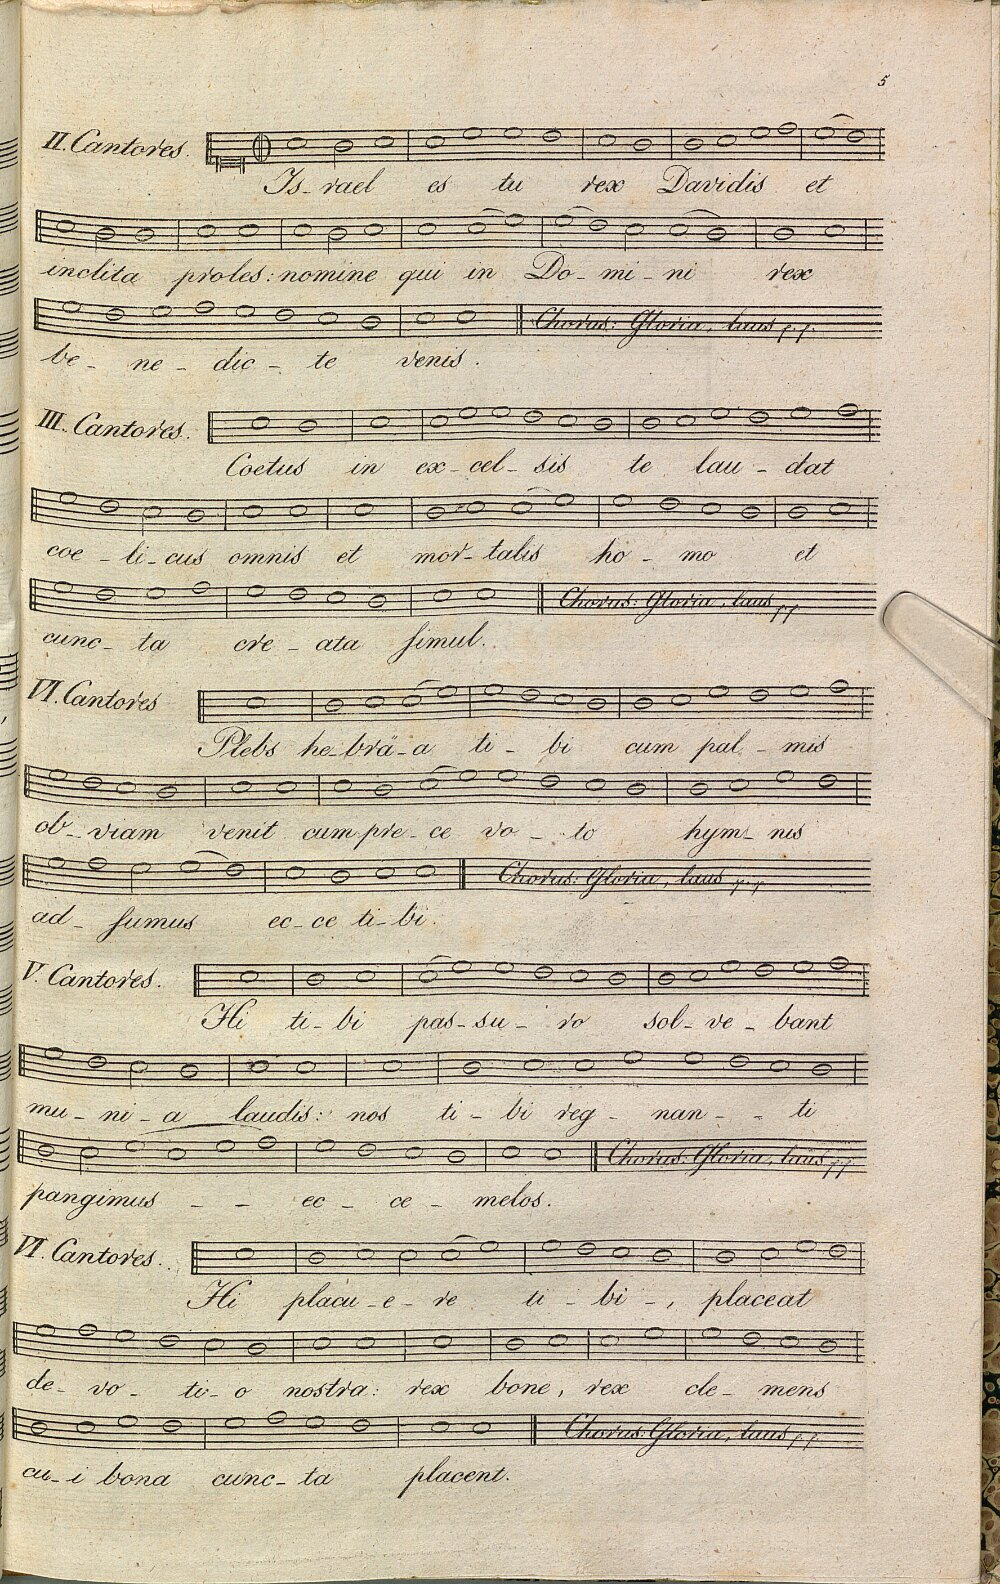 5
II. Cantores.
Is-rael es tu rex Davidis et
inclita proles: nomine qui in Do-mi-ni rex
Chorus: Gloria, laus p.p.
be-ne-dic-te venis.
III. Cantores.
Coetus in ex-cel-sis te lau-dat
coe-li-cus omnis et mor-talis ho-mo et
Chorus: Gloria, laus p.p.
cunc-ta cre-ata simul.
VI. Cantores
Plebs he-brä-a ti-bi cum pal-mis
ob-viam venit cum pre-ce vo-to hym-nis
Chorus: Gloria, laus p.p.
ad-sumus ec-ce ti-bi.
V. Cantores.
Hi ti-bi pas-su-ro sol-ve-bant
mu-ni-a laudis: nos ti-bi reg-nan--ti
Chorus: Gloria, laus p.p.
pangimus - - ec-ce-melos.
VI. Cantores.
Hi placu-e-re ti-bi-, placeat
de-vo-ti-o nostra: rex bone, rex cle-mens
Chorus: Gloria, laus p.p.
cu-i bona cunc-ta placent.